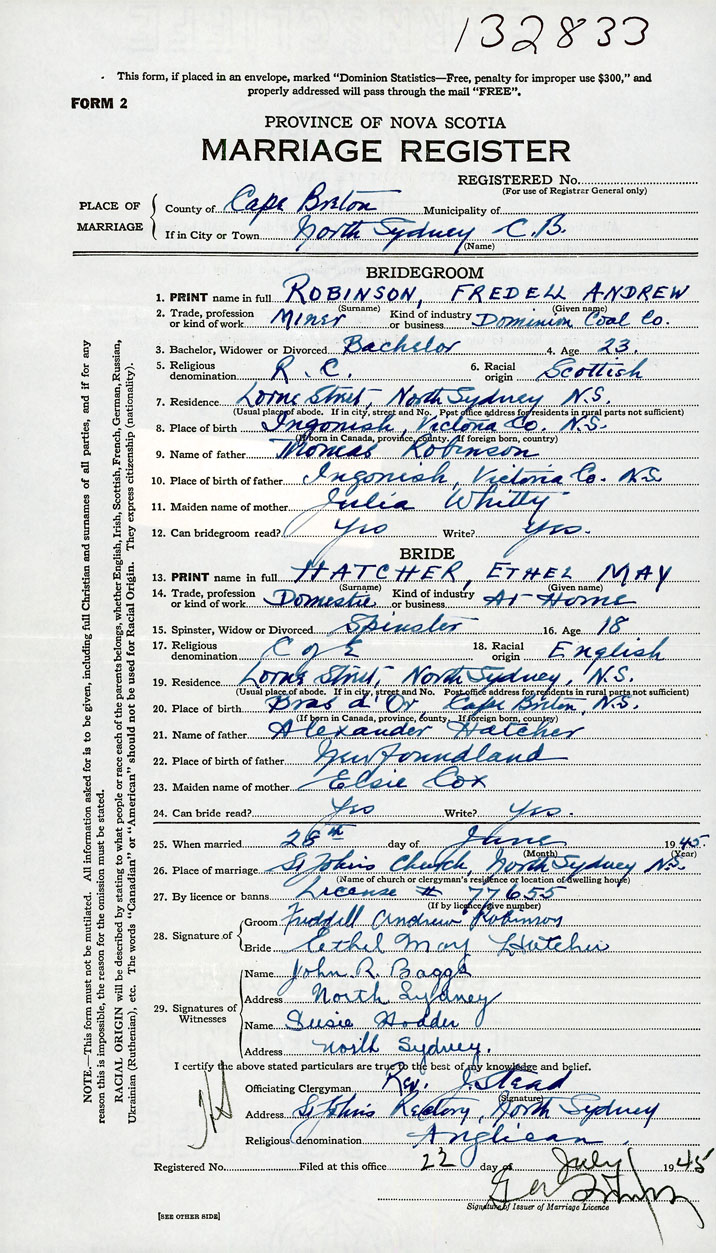 132833
· This form, if placed in an envelope, marked “Dominion Statistics—Free, penalty for improper use $300,” and
properly addressed will pass through the mail “FREE”.
FORM 2
PROVINCE OF NOVA SCOTIA
MARRIAGE REGISTER
REGISTERED No.
(For use of Registrar General only)
PLACE OF MARRIAGE
County of Cape Breton Municipality of
If in City or Town North Sydney C.B.
(Name)
BRIDEGROOM
1. PRINT name in full ROBINSON, FREDELL ANDREW
(Surname) (Given name)
2. Trade, profession or kind of work Miner Kind of industry or business Dominion Coal Co.
3. Bachelor, Widower or Divorced Bachelor 4. Age 23.
5. Religious denomination R.C. 6. Racial origin Scottish
7. Residence Lorne Street, North Sydney N.S.
(Usual place of abode. If in city, street and No. Post office address for residents in rural parts not sufficient)
8. Place of birth Ingonish, Victoria Co. N.S.
(If born in Canada, province, county. If foreign born, country)
9. Name of father Thomas Robinson
10. Place of birth of father Ingonish, Victoria Co. N.S.
11. Maiden name of mother Julia Whitty
12. Can bridegroom read? Yes Write? Yes.
BRIDE
13. PRINT name in full HATCHER, ETHEL MAY
(Surname) (Given name)
14. Trade, profession or kind of work Domestic Kind of industry or business At Home
15. Spinster, Widow or Divorced Spinster 16. Age 18
17. Religious denomination C of E 18. Racial origin English
19. Residence Lorne Street, North Sydney, N.S.
(Usual place of abode. If in city, street and No. Post office address for residents in rural parts not sufficient)
20. Place of birth Bras d'Or, Cape Breton, N.S.
(If born in Canada, province, county. If foreign born, country)
21. Name of father Alexander Hatcher
22. Place of birth of father Newfoundland
23. Maiden name of mother Elsie Cox
24. Can bride read? Yes Write? Yes.
25. When married 28th day of June 1945.
(Month) (Year)
26. Place of marriage St Johns Church, North Sydney N.S.
(Name of church or clergyman's residence or location of dwelling house)
27. By licence or banns License # 77655
(If by licence give number)
28. Signature of
Groom Freddell Andrew Robinson
Bride Eethel May Hatcher
29. Signatures of Witnesses
Name John R. Baggs
Address North Sydney
Name Susie Hodder
Address North Sydney.
I certify the above stated particulars are true to the best of my knowledge and belief.
Officiating Clergyman Rev. J Stead
(Signature)
Address St Johns Rectory, North Sydney
Religious denomination Anglican.
Registered No. Filed at this office 23 day of July 1945
Signature of Issuer of Marriage Licence
[SEE OTHER SIDE]
NOTE.—This form must not be mutilated. All information asked for is to be given, including full Christian and surnames of all parties, and if for any
reason this is impossible, the reason for the omission must be stated.
RACIAL ORIGIN will be described by stating to what people or race each of the parents belongs, whether English, Irish, Scottish, French, German, Russian,
Ukrainian (Ruthenian), etc. The words “Canadian” or “American” should not be used for Racial Origin. They express citizenship (nationality).